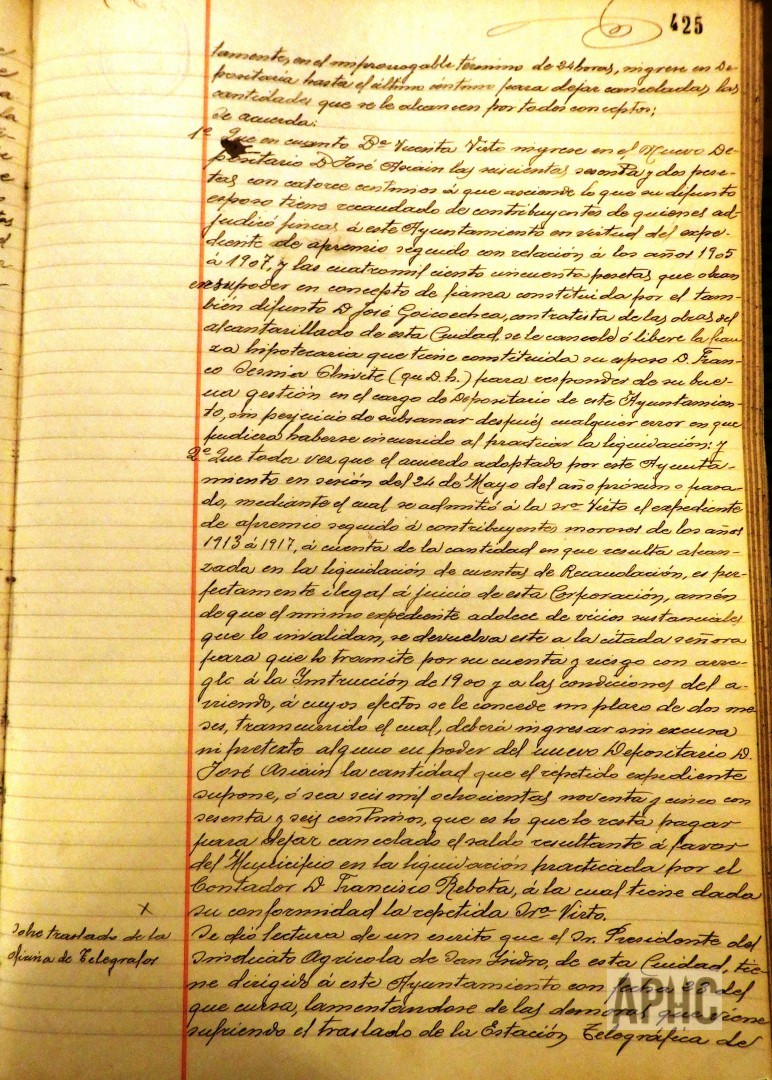 425
tamente, en el improrrogable término de 24 horas, ingrese en De-
positaría hasta el último céntimo para dejar canceladas las
cantidades que se le alcancen por todos conceptos;
Se acuerda:
1º Que en cuanto Dª Vicenta Virto ingrese en el Nuevo De-
positario D. José Asiain las seiscientas sesenta y dos pese-
tas con catorce centimos á que asciende lo que su difunto
esposo tiene recaudado de contribuyentes de quienes ad-
judicó fincas á este Ayuntamiento en virtud del expe-
diente de apremio seguido con relación á los años 1905
á 1907, y las cuatro mil ciento cincuenta pesetas que obran
en su poder en concepto de fianza constituida por el tam-
bién difunto D. José Goicoechea, contratista de las obras del
alcantarillado de esta Ciudad, se le cancele ó libere la fian-
za hipotecaria que tiene constituida su esposo D. Fran-
co Sesma Chivite (q. D. h.) para responder de su bue-
na gestión en el cargo de Depositario de este Ayuntamien-
to, sin perjuicio de subsanar después cualquier error en que
pudiera haberse incurrido al practicar la liquidación; y
2º Que toda vez que el acuerdo adoptado por este Ayunta-
miento en sesión del 24 de Mayo del año próximo pasa-
do, mediante el cual se admitió á la Srª Virto el expediente
de apremio seguido á contribuyentes morosos de los años
1913 á 1917, á cuenta de la cantidad en que resulta alcan-
zada en la liquidación de cuentas de Recaudación, es per-
fectamente ilegal á juicio de esta Corporación, amén
de que el mismo expediente adolece de vicios sustanciales
que lo invalidan, se devuelva este a la citada señora
para que lo tramite por su cuenta y riesgo con arre-
glo á la Instrucción de 1900 y a las condiciones del a-
rriendo, á cuyos efectos se le concede un plazo de dos me-
ses, transcurrido el cual, deberá ingresar sin excusa
ni pretexto alguno en poder del nuevo Depositario D.
José Asiain la cantidad que el repetido expediente
supone, ó sea seis mil ochocientas noventa y cinco con
sesenta y seis centimos, que es lo que le resta pagar
para dejar cancelado el saldo resultante á favor
del Municipio en la liquidación practicada por el
Contador D. Francisco Rebota, á la cual tiene dada
su conformidad la repetida Srª Virto.
X
Sobre traslado de la
oficina de Telegrafos
Se dió lectura de un escrito que el Sr. Presidente del
Sindicato Agricola de San Isidro, de esta Ciudad, tie-
ne dirigido á este Ayuntamiento con fecha del
que cursa, lamentandose de las demoras que viene
sufriendo el traslado de la Estación Telegráfica de
APHC